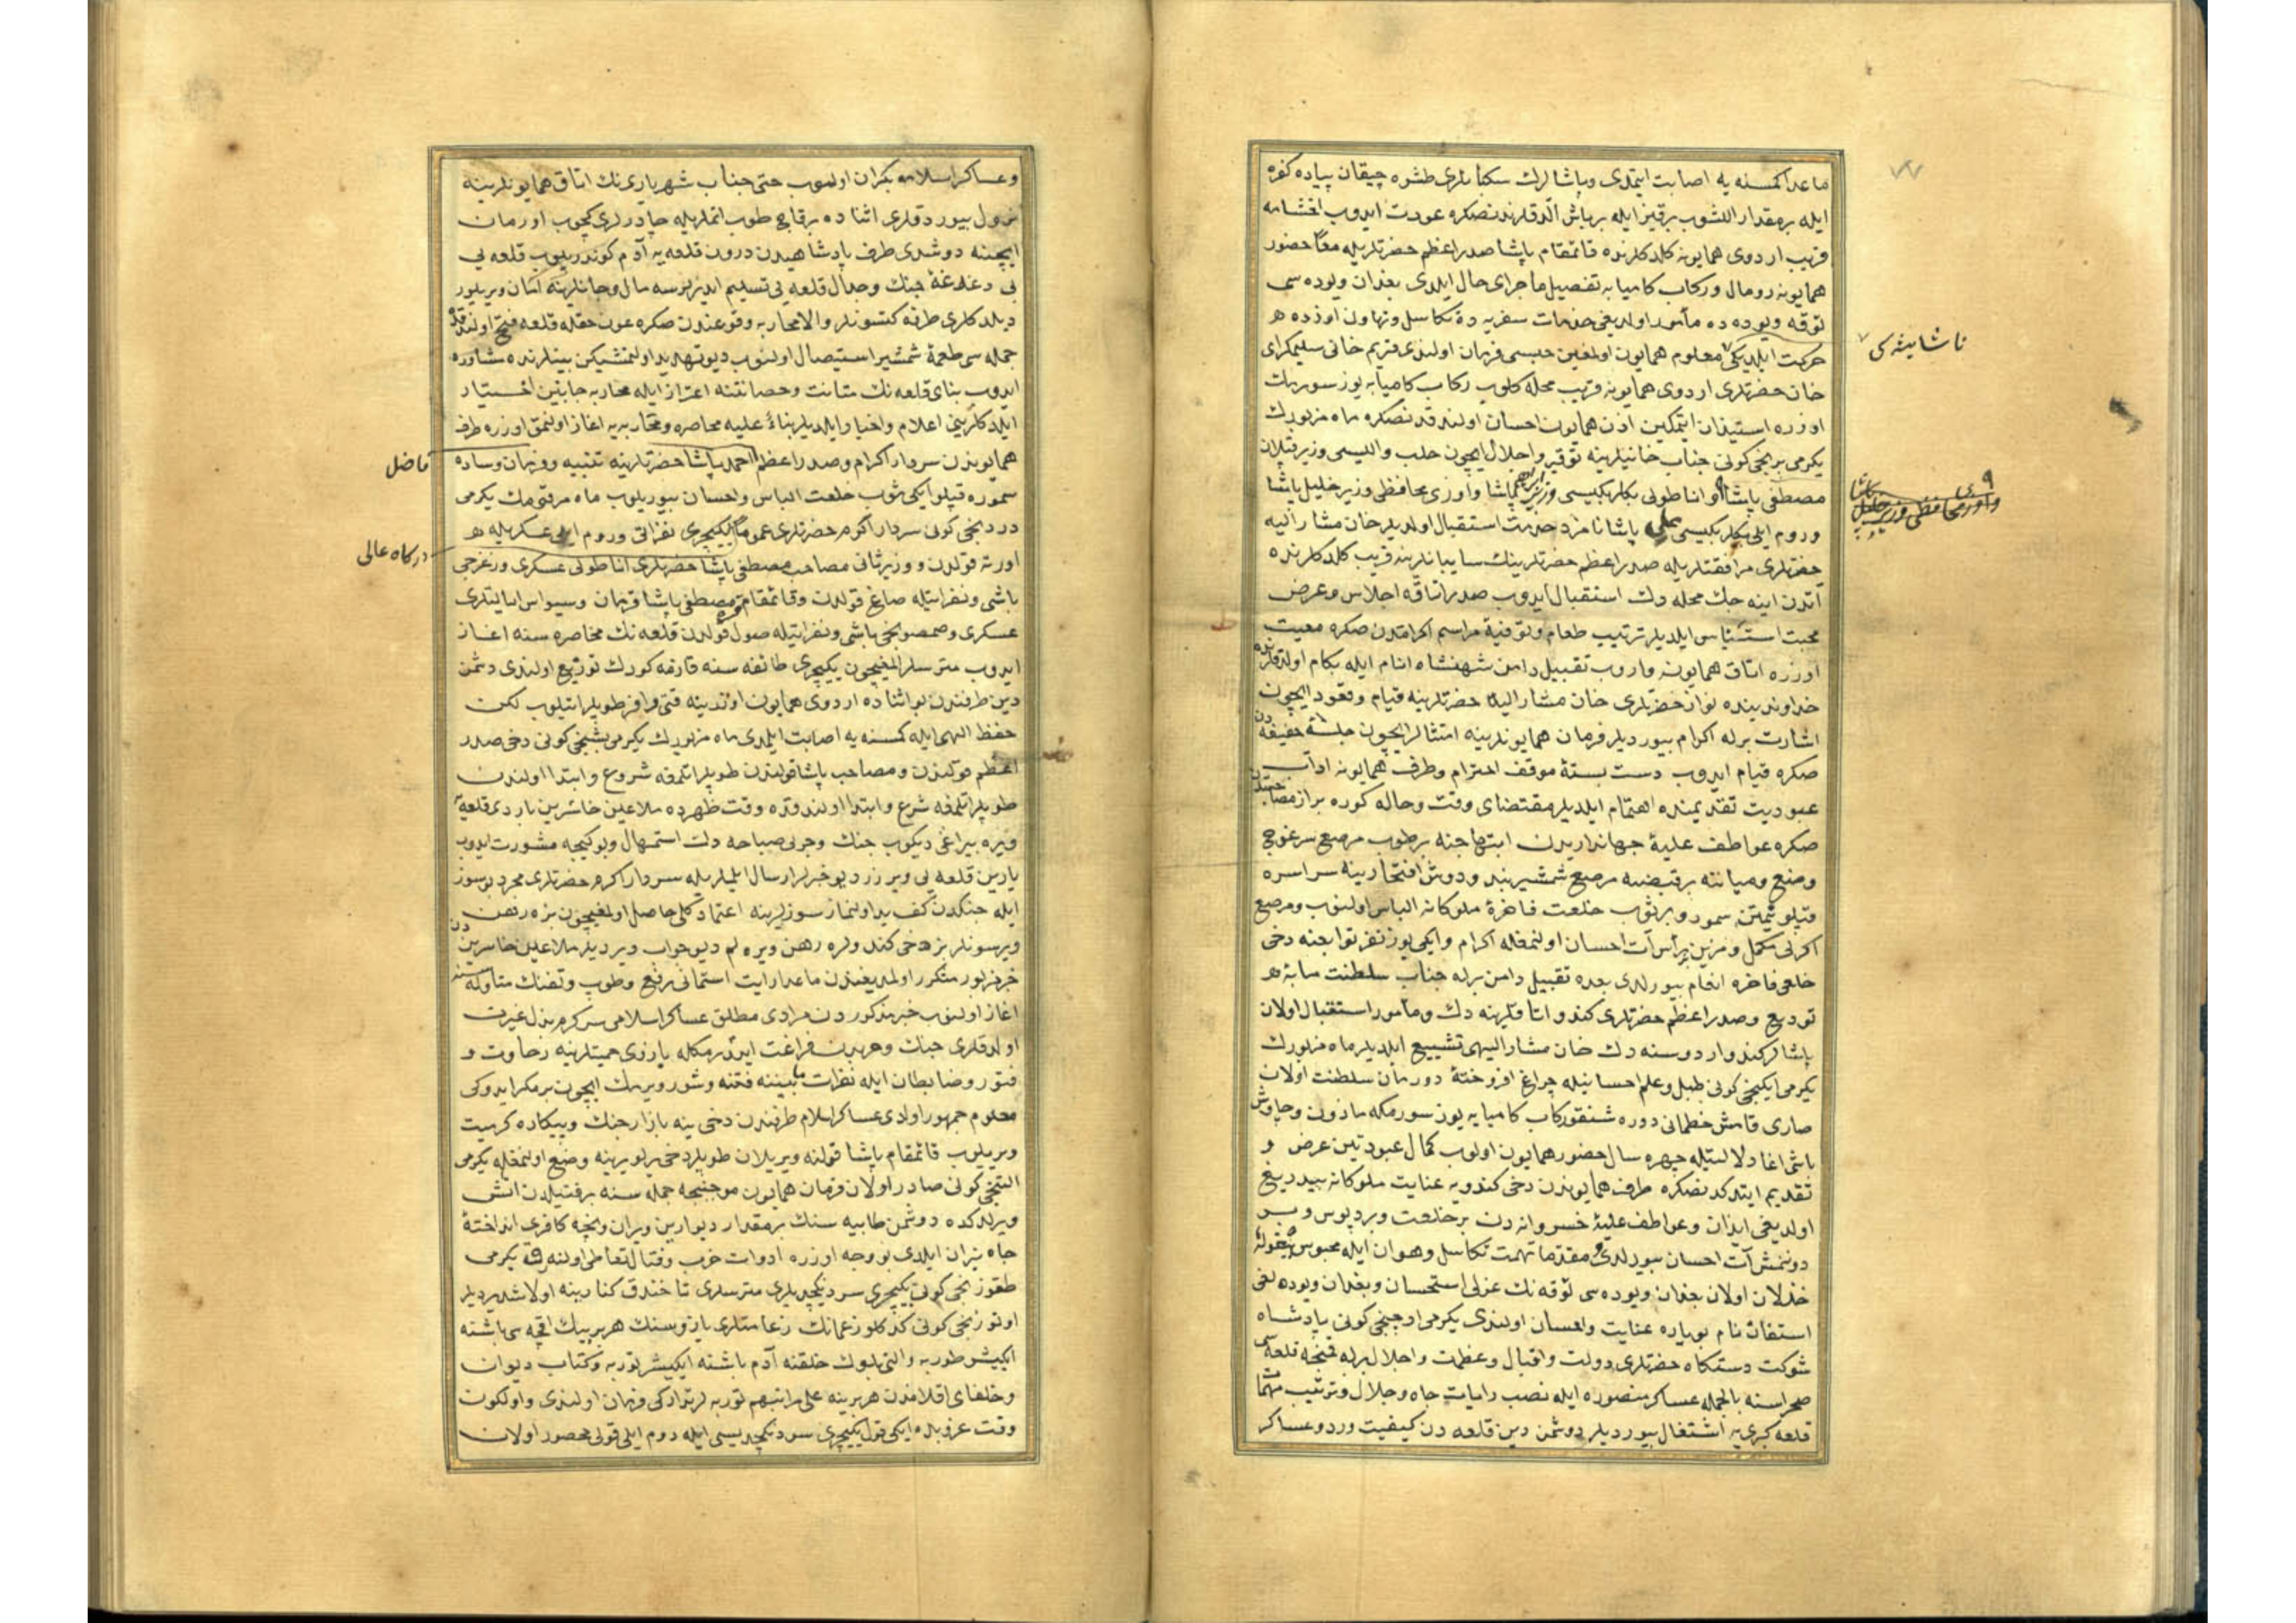 ماعدا كمسنه يه اصابت ايتمدى وپاشالرك سكبانلرى طشره چيقان پياده كفره
ايله بر مقدار اللشوب برقيز ايله بر باش آلدقلرندنصكره عودت ايدوب اخشامه
قريب اردوى همايونه كلدكلرنده قائمقام پاشا صدراعظم حضرتلريله معًا حضور
همايونه رومال وركاب كاميابه تفصيل ماجراى حال ايلدى بغدان ويوده سى
لوقه ويوده ده مأمور اولديغى خدمات سفريه ده تكاسل وتهاون اوزده
حركت ايلديكى معلوم همايون اولمغين حبسى فرمان اولندى قريم خانى سليمكراى
خان حضرتلرى اردوى همايونه قريب محله كلوب ركاب كاميابه يوز سورمك
اوزره استيذان ايتمكين اذن همايون احسان اولندقدنصكره ماه مزبورك
يكرمى برنجى كونى جناب خانيلرينه توقير واجلال ايچون حلب واليسى وزير قپلان
مصطفى پاشا واناطولى بكلربكيسى وزير ابراهيم پاشا واوزى محافظى وزير خليل پاشا
وروم ايلى بكلربكيسى على پاشا نامزد خدمت استقبال اولديلر خان مشار اليه
حضرتلرى مرافقتلريله صدراعظم حضرتلرينك سايبانلرينه قريب كلدكلرنده
آتدن اينه جك محله دك استقبال ايدوب صدر اتاقه اجلاس وعرض
محبت استيناس ايلديلر ترتيب طعام وتوفية مراسم اكرامدن صكره معيت
اوزره اتاق همايونه واروب تقبيل دامن شهنشاه انام ايله بكام اولدقلرنده
خداوند بنده نواز حضرتلرى خان مشار اليه حضرتلرينه قيام وقعود ايچون
اشارت برله اكرام بيورديلر فرمان همايونلرينه امتثالا ايچون جلسۀ خفيفه دن
صكره قيام ايدوب دست بستۀ موقف احترام وطرف همايونه اداب
عبوديت تقديمنده اهتمام ايلديلر مقتضاى وقت وحاله كوره براز مصاحبتدن
صكره عواطف عليۀ جهانداريدن ابتهاجنه بر طوب مرصع سرغوج
وضع وميانته بر قبضه مرصع شمشير بند ودوش افتخارينه سراسره
قپلو سمور وبر ثوب خلعت فاخرۀ ملوكانه الباس اولنوب ومرصع
اكرلى مكمل ومزين بر رأس آت احسان اولنمغله اكرام وايكى يوز نفر توابعنه دخى
خلع فاخره انعام بيورلدى بعده تقبيل دامن برله جناب سلطنت مآبه
توديع وصدراعظم حضرتلرى كندو اتاقلرينه دك ومأمور استقبال اولان
پاشالر كندو اردوسنه دك خان مشار اليهى تشييع ايلديلر ماه مزبورك
يكرمى ايكنجى كونى طبل وعلم احسانيله چراغ افروختۀ دورمان سلطنت اولان
صارى قامش خطمانى دوره شنقو ركاب كاميابه يوز سورمكه مأذون وچاوش
باشى اغا دلالتيله چهره سال حضور همايون اولوب كمال عبوديتين عرض و
تقديم ايتدكدنصكره طرف همايوندن دخى كندويه عنايت ملوكانه بيدريغ
اولديغى ايذان وعواطف عليۀ خسروانه دن بر خلعت وبر دپوس وبر
دونمش آت احسان بيورلدى ومقدما تهمت تكاسل وهوان ايله محبوس
خذلان اولان بغدان ويوده سى لوقه نك عزلى استحسان وبغدان ويوده لغى
استفان نام بويآره عنايت واحسان اولندى يكرمى اوچنجى كونى پادشاه
شوكت دستكاه حضرتلرى دولت واقبال وعظمت واجلال برله قمنچه قلعه سى
صحراسنه بالجمله عساكر منصوره ايله نصب رايات جاه وجلال وترتيب مهمات
قلعه كيرى يه اشتغال بيورديلر دوشمن دين قلعه دن كيفيت ورود عساكر
ناشايسته كى
وعساكر اسلامه نكران اولنوب حتى جناب شهرياريزنك اتاق همايونلرينه
نزول بيوردقلرى اثناده برقاچ طوب اتملريله چادرلرى كچوب اورمان
ايچينه دوشدى طرف پادشاهيدن درون قلعه يه آدم كوندريلوب قلعه يى
بى دغدغۀ جنك وجدال قلعه يى تسليم ايدرلرسه مال وجانلرينه امان ويريلور
ديلدكلرى طرفه كتسونلر والا محاربه وقوعندن صكره عون حقله قلعه فتح اولندقده
جمله سى طعمۀ شمشير استيصال اولنوب ديو تهديد اولنمشيكن بينلرنده مشاوره
ايدوب بناى قلعه نك متانت وحصانتنه اعتزاز ايله محاربه جانبين اختيار
ايلدكلرينى اعلام واخبار ايلديلر بناءً عليه محاصره ومحاربه يه اغاز اولنمق اوزره طرف
همايوندن سردار اكرم وصدراعظم احمد پاشا حضرتلرينه تنبيه وفرمان وساده
سموره قپلو ايكى ثوب خلعت الباس واحسان بيوريلوب ماه مرقومك يكرمى
دردنجى كونى سردار اكرم حضرتلرى عمومًا يكيچرى نفراتى وروم ايلى عسكريله
اورته قولدن ووزير ثانى مصاحب مصطفى پاشا حضرتلرى اناطولى عسكرى وزغرجى
باشى ونفراتيله صاغ قولدن وقائمقام قره مصطفى پاشا قرمان وسيواس ايالتلرى
عسكرى وصمصونجى باشى ونفراتيله صول قولدن قلعه نك محاصره سنه اغاز
ايدوب مترسلر ايچون يكيچرى طائفه سنه قازمه كورك توزيع اولندى دشمن
دين طرفندن بو اثناده اردوى همايون اوزرينه قتى وافر طوپلر اتيلوب لكن
حفظ الهى ايله كمسنه يه اصابت ايلمدى ماه مزبورك يكرمى بشنجى كونى دخى صدر
اعظم قولندن ومصاحب پاشا قولندن طوپلر اتلمغه شروع وابتدا اولندى
طوپلر اتلمغه شرع وابتدا اولندقده وقت ظهرده ملاعين خاسرين بارۀ قلعه يه
ويره بيراغى ديكوب جنك وجولى صباحه دك استمهال وبو كيجه مشورت ايدوب
يارين قلعه يى ويررز ديو خبرلر ارسال ايلملريله سردار اكرم حضرتلرى مجرد بو سوز
ايله جنكدن كف يد اولنماز سوزلرينه اعتماد كلى حاصل اولمغيچون بزه رهن
ويرسونلر بز دخى كندولره رهن ويره لم ديو جواب ويرديلر ملاعين خاسرين دن
خبر مزبور متكرر اولمديغندن ماعدا رايت استمانى رفع وطوب وتفنك
اغاز اولنوب خبر مذكوردن مرادى مطلق عساكر اسلامى سركرم بذل غيرت
اولدقلرى جنك وحربدن فراغت ايتدرمكله بارزى حميتلرينه رخاوت و
فتور وضابطان ايله نفرات مابيننه فتنه وشور ويرمك ايچون بر مكر ايدوكى
معلوم جمهور اولدى عساكر اسلام طرفندن دخى ينه بازار جنك وپيكاره كرميت
ويريلوب قائمقام پاشا قولنه ويريلان طوپلر دخى يرلو يرينه وضع اولنمغله يكرمى
التنجى كونى صادر اولان فرمان همايون موجبنجه جمله سنه بر فتيلدن اتش
ويرلدكده دوشمن طابيه سنك بر مقدار ديوارين ويران ونيچه كافرى انداختۀ
چاه نيران ايلدى بو وجه اوزره ادوات حرب وقتال تعاطى اولنه رق يكرمى
طقوزنجى كونى يكيچرى سردنكچديلرى مترسلرى تا خندق كنارينه اولاشديرديلر
اوتوزنجى كونى كدكلو زعمانك زعامتلرى يازوسنك هر بر بيك اقچه سى باشنه
ايكيشر طوربه والتى بلوك خلقنه آدم باشنه ايكيشر توربه وكتاب ديوان
وخلفاى اقلامدن هر برينه على مراتبهم توربه لر تدارکى فرمان اولندى واولكون
وقت غروبده ايكى قول يكيچرى سردنكچديسى ايله روم ايلى قولى محصور اولان
فاضل
دركاه عالى